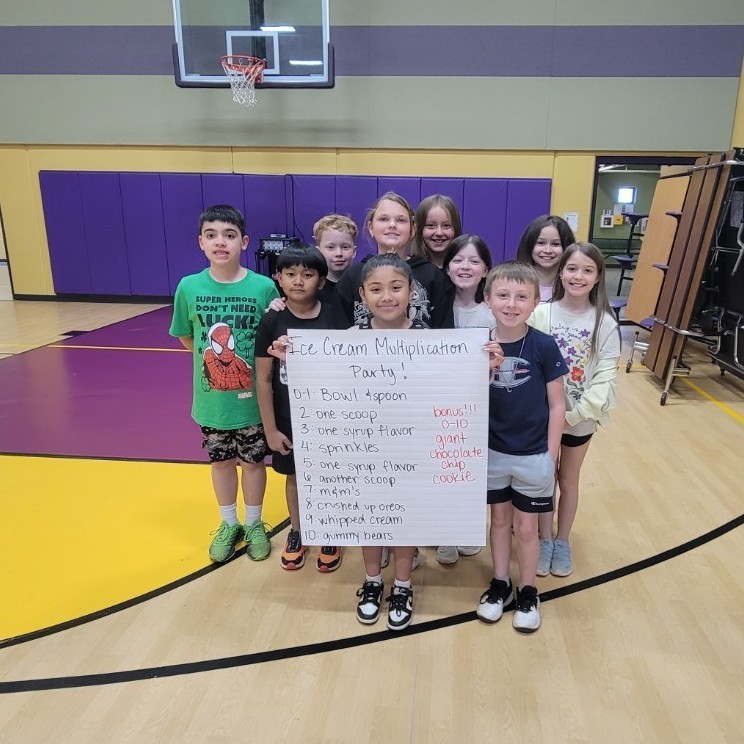 SUPER HEROES
DON'T NEED
LUCK!
MARVEL
Ice Cream Multiplication
Party!
0-1: Bowl & spoon
2: one scoop
3: one syrup flavor
4: sprinkles
5: one syrup flavor
6: another scoop
7: m&m's
8: crushed up oreos
9: whipped cream
10: gummy bears
bonus!!!
0-10
giant
chocolate
chip
cookie
Champion